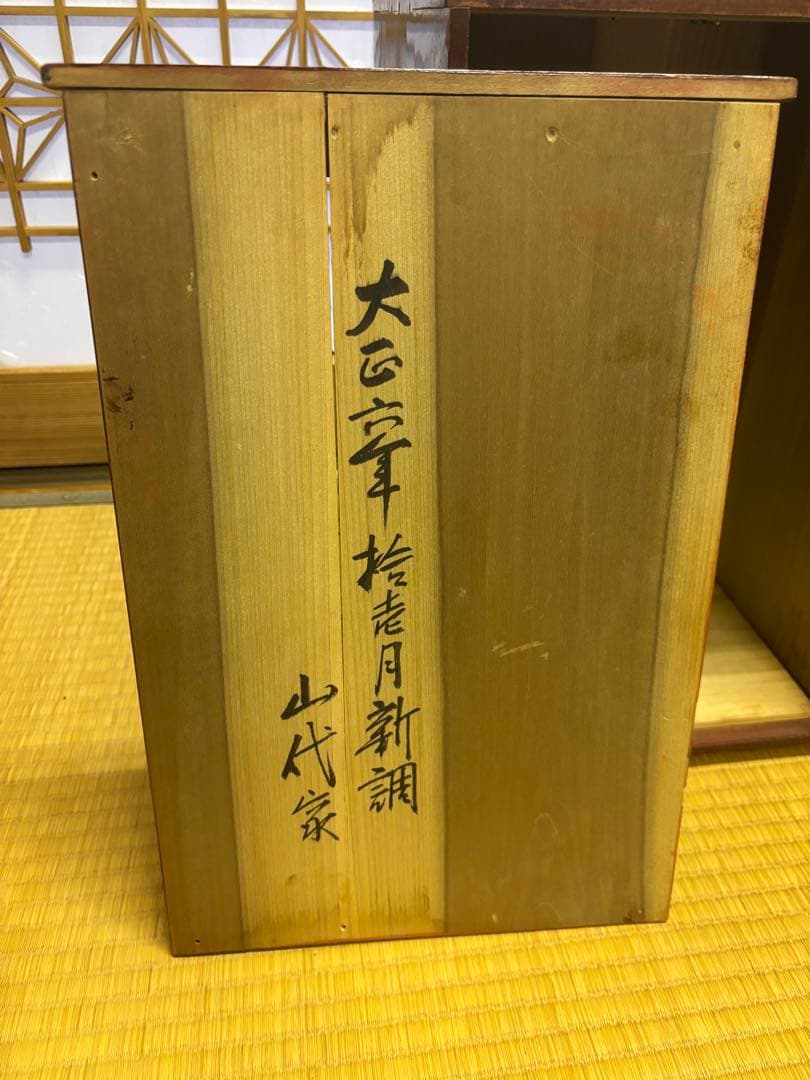 大正六年拾壱月新調
山代家